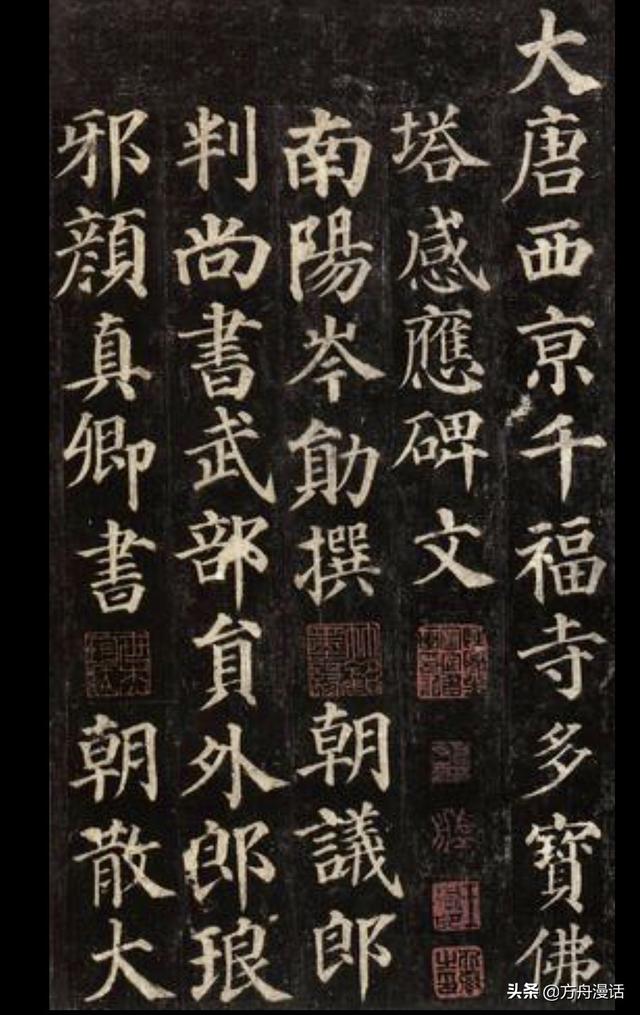 大唐西亰千福寺多寶佛
塔感應碑文
南陽岑勛撰 朝議郎
判尚書武部員外郎琅
邪顏真卿書 朝散大
头条 @方舟漫话